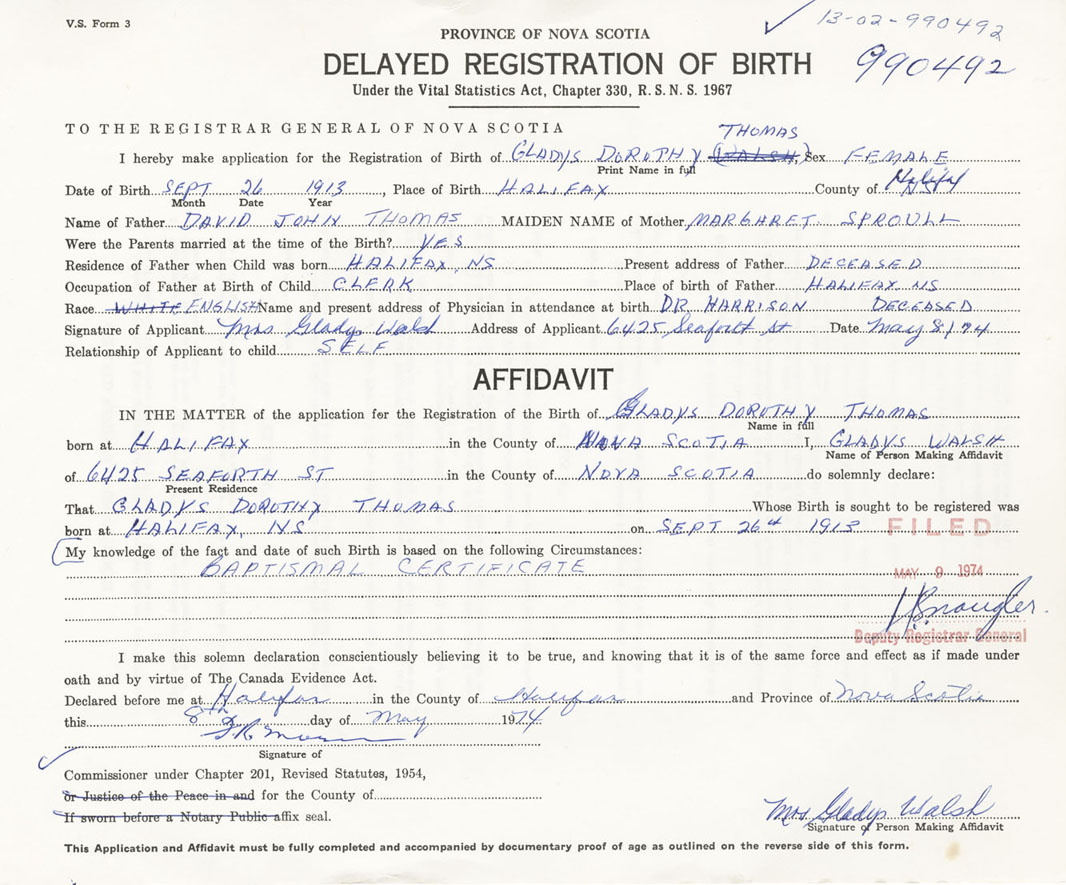 V.S. Form 3
13-02-990492
PROVINCE OF NOVA SCOTIA
DELAYED REGISTRATION OF BIRTH
990492
Under the Vital Statistics Act, Chapter 330, R.S.N.S. 1967
TO THE REGISTRAR GENERAL OF NOVA SCOTIA
THOMAS
I hereby make application for the Registration of Birth of GLADYS DOROTHY (WALSH) Sex FEMALE
Print Name in full
Date of Birth SEPT 26 1913, Place of Birth HALIFAX County of Halifax
Month Date Year
Name of Father DAVID JOHN THOMAS MAIDEN NAME of Mother MARGHRET SPROULL
Were the Parents married at the time of the Birth? YES
Residence of Father when Child was born HALIFAX, NS Present address of Father DECEASED
Occupation of Father at Birth of Child CLERK Place of birth of Father HALIFAX NS
Race WHITE ENGLISH Name and present address of Physician in attendance at birth DR. HARRISON DECEASED
Signature of Applicant Mrs Gladys Walsh Address of Applicant 6425 Seaforth St Date May 8/74
Relationship of Applicant to child SELF
AFFIDAVIT
IN THE MATTER of the application for the Registration of the Birth of GLADYS DOROTHY THOMAS
Name in full
born at HALIFAX in the County of NOVA SCOTIA I, GLADYS WALSH
Name of Person Making Affidavit
of 6425 SEAFORTH ST in the County of NOVA SCOTIA do solemnly declare:
Present Residence
That GLADYS DOROTHY THOMAS Whose Birth is sought to be registered was
born at HALIFAX, NS on SEPT 26th 1913
FILED
My knowledge of the fact and date of such Birth is based on the following Circumstances:
BAPTISMAL CERTIFICATE
MAY 9 1974
Deputy Registrar General
I make this solemn declaration conscientiously believing it to be true, and knowing that it is of the same force and effect as if made under
oath and by virtue of The Canada Evidence Act.
Declared before me at Halifax in the County of Halifax and Province of Nova Scotia
this 8th day of May 1974
Signature of
Commissioner under Chapter 201, Revised Statutes, 1954,
or Justice of the Peace in and for the County of
If sworn before a Notary Public affix seal.
Mrs Gladys Walsh
Signature of Person Making Affidavit
This Application and Affidavit must be fully completed and accompanied by documentary proof of age as outlined on the reverse side of this form.